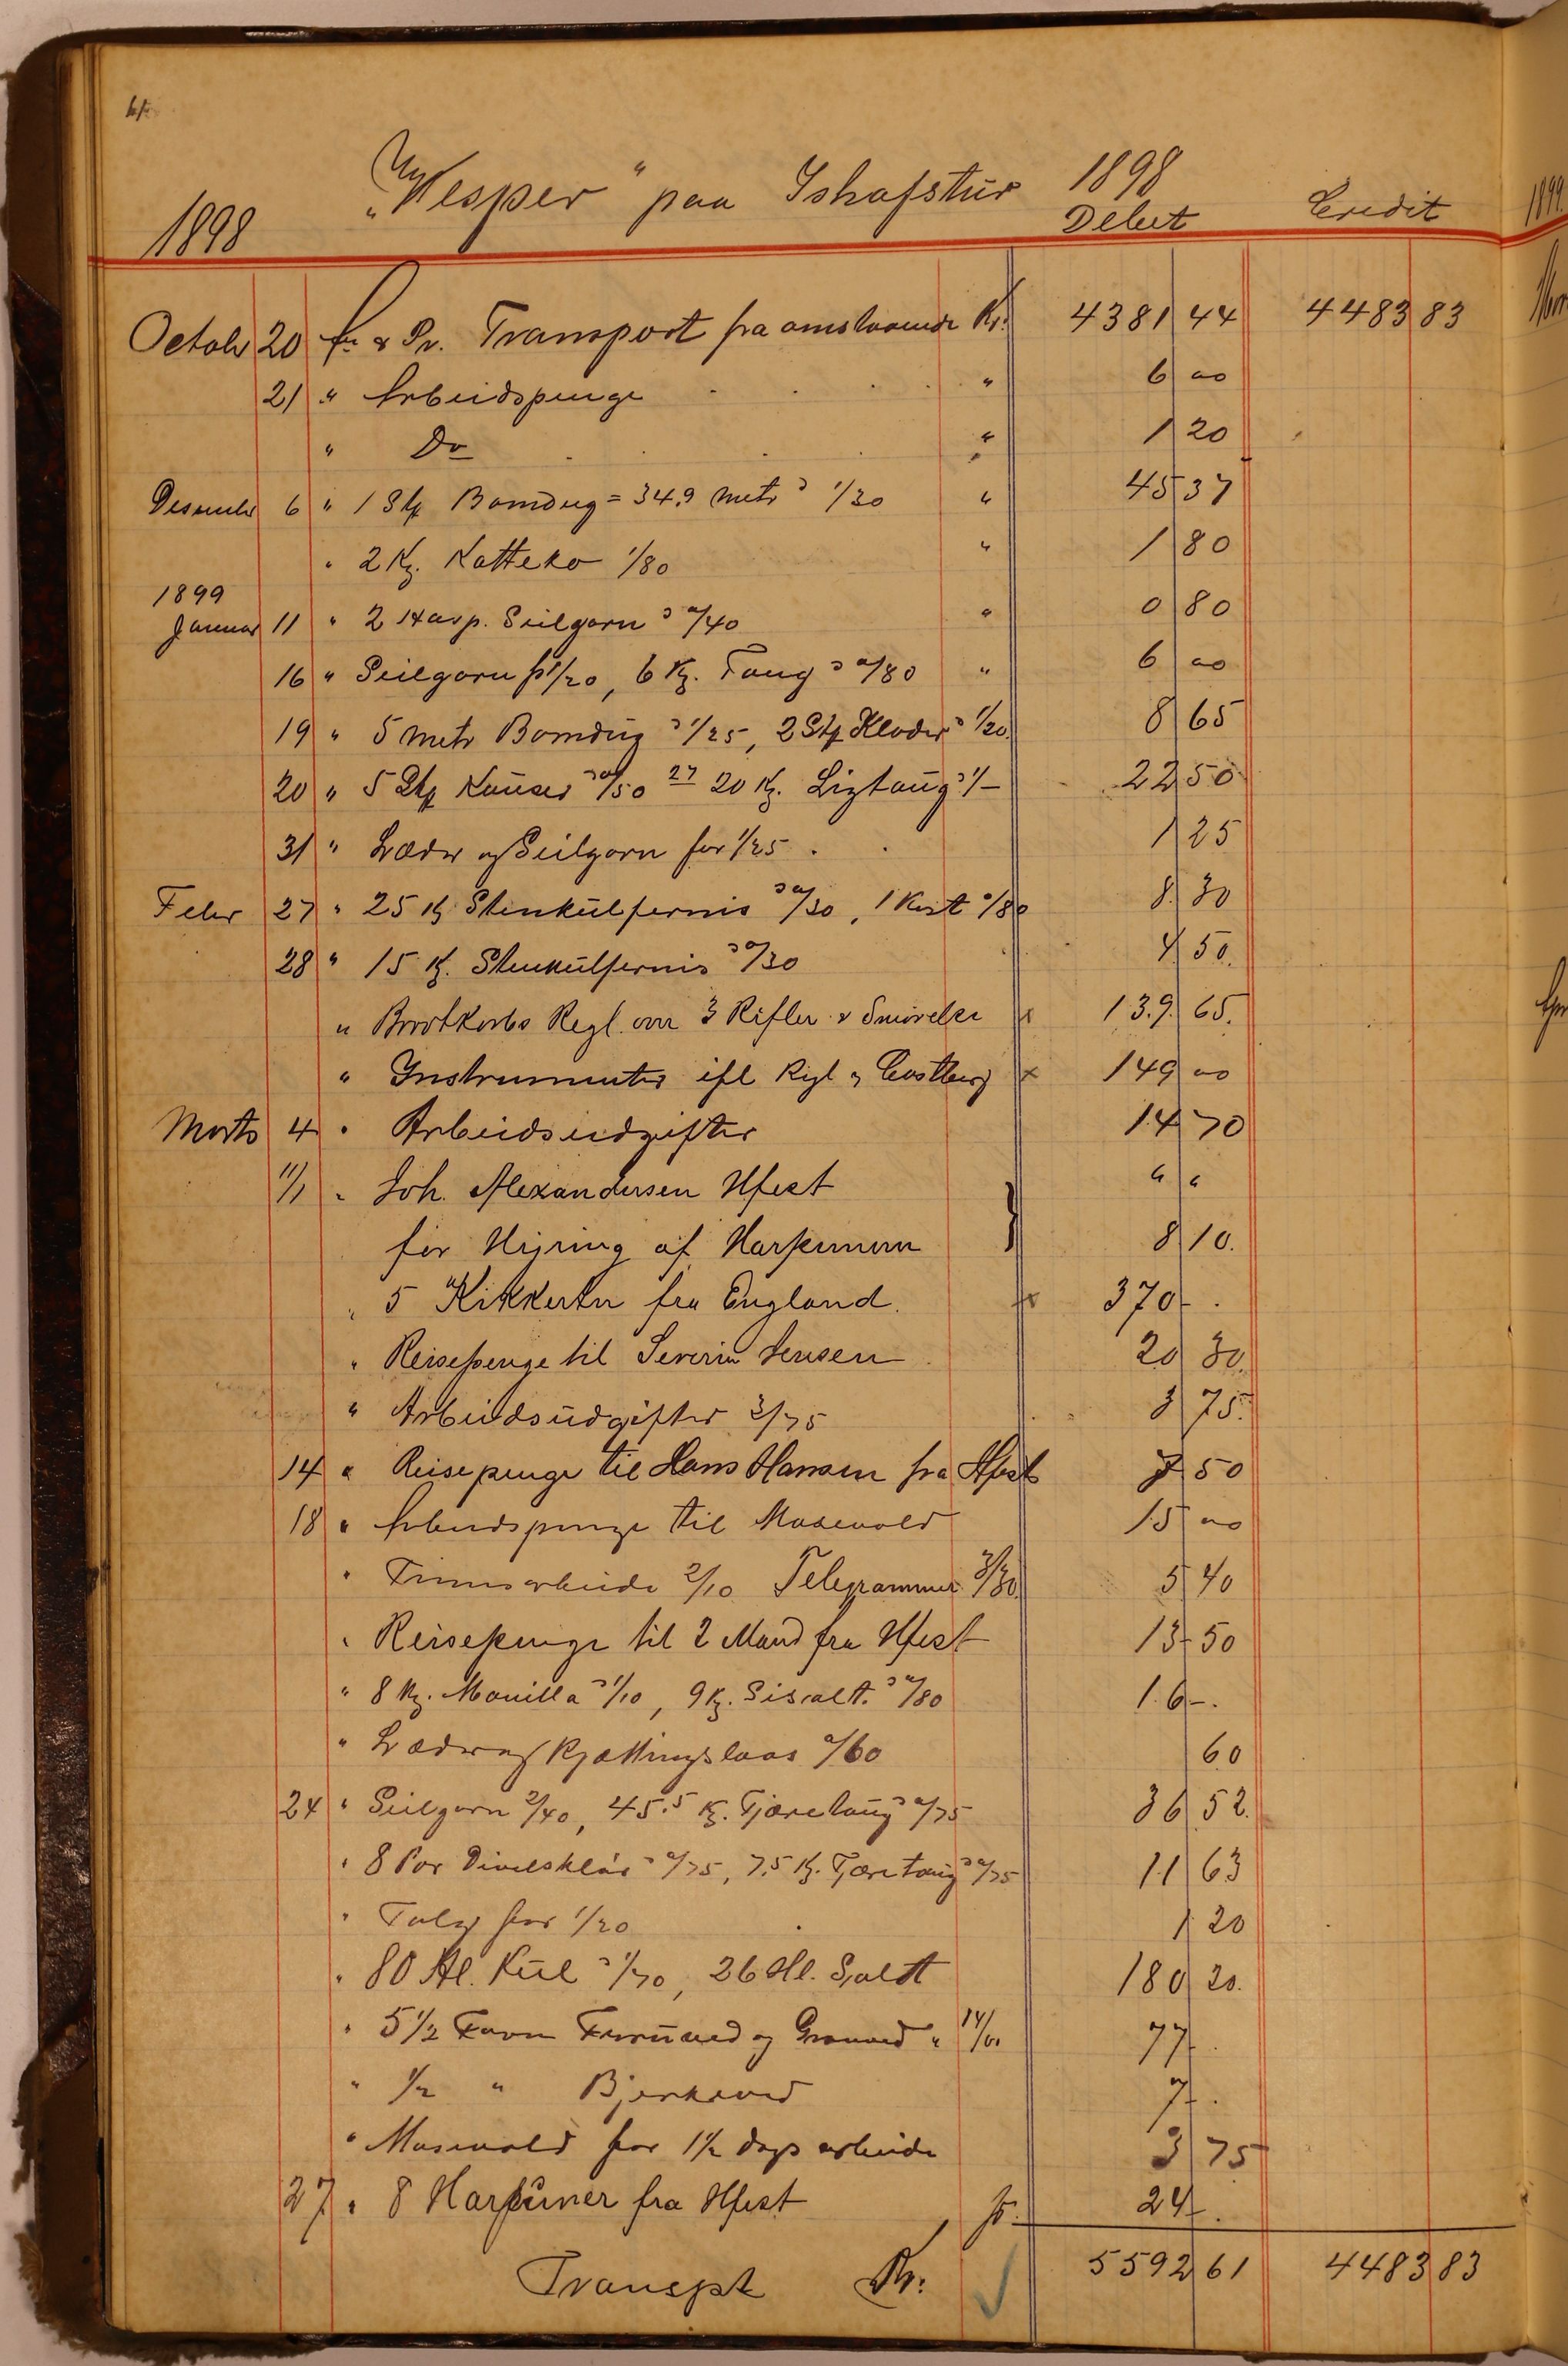 "Vesper" paa Ishafstur 1898
1898 Debet Credit
October 20 Pr. Transport fra omstaaende Kr. 4381 44 4483 83
21 " Arbeidspenge " 6 00
" Do " 1 20
Desember 6 " 1 Stk Bomdug = 34.9 metr à 1/30 " 45 37
" 2 Kg. Katteko 1/80 " 1 80
1899
Januar 11 " 2 Hasp. Seilgarn à "/40 " 0 80
16 " Seilgarn f 1/20, 6 Kg. Toug à "/80 " 6 00
19 " 5 metr Bomdug à 1/25, 2 Stk Kloder à 1/20 8 65
20 " 5 Stk Kouser à "/50 27 20 Kg. Ligtoug à 1/- 22 50
31 " Læder og Seilgarn for 1/25 1 25
Febr 27 " 25 Kg Stenkulfernis à "/30, 1 Kost "/80 8 30
28 " 15 Kg. Stenkulfernis à "/30 4 50
" Regl. over 3 Rifler & x 139 65
" Instrumenter ifl Regl x 149 00
Marts 4 " Arbeidsudgifter 14 70
11/1 " Joh. Alexandersen Hfest " "
for Hyring af Harpunern } 8 10
" 5 Kikkerter fra England 370 -
" Reisepenge til Severin Jensen 20 30
" Arbeidsudgifter 3/75 3 75
14 " Reisepenge til Hans Hansen fra Hfest 7 50
18 " Arbeidspenge til Masevold 15 00
" 2/10 Telegrammer 3/30 5 40
" Reisepenge til 2 Mand fra Hfest 13 50
" 8 Kg. Manilla à 1/10, 9 Kg. Sisalt. à "/80 16 -
" Læder og Kjættingslaas "/60 60
24 " Seilgarn 2/40, 45.5 Kg. Tjæretoug à "/75 36 52
" 8 Par Divelsklør à "/75, 7.5 Kg. Tjæretoug à "/75 11 63
" Talg for 1/20 1 20
" 80 Hl. Kul à 1/70, 26 Hl. Salt 180 20
" 5 1/2 Favn Furuved og Granved " 14/00 77 -
" 1/2 " Bjerkeved 7 -
" Masevold for 1 1/2 dags arbeide 3 75
27 " 8 Harpuner fra Hfest 24 -
Transpt Kr. 5592 61 4483 83